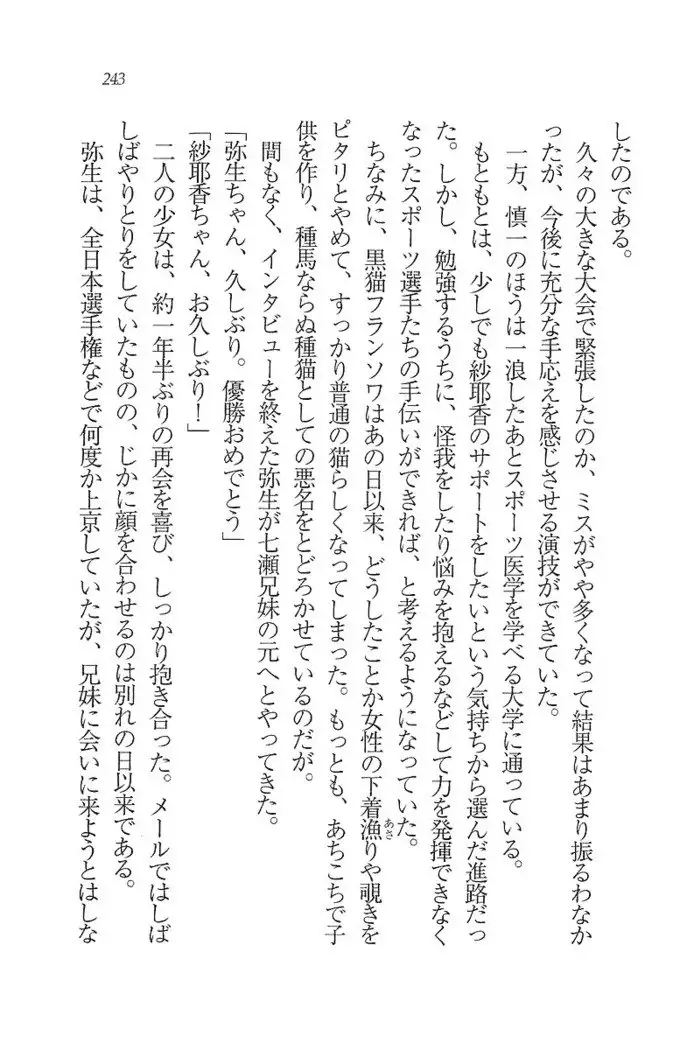 243
したのである。
　久々の大きな大会で緊張したのか、ミスがやや多くなって結果はあまり振るわなか
ったが、今後に充分な手応えを感じさせる演技ができていた。
　一方、慎一のほうは一浪したあとスポーツ医学を学べる大学に通っている。
　もともとは、少しでも紗耶香のサポートをしたいという気持ちから選んだ進路だっ
た。しかし、勉強するうちに、怪我をしたり悩みを抱えるなどして力を発揮できなく
なったスポーツ選手たちの手伝いができれば、と考えるようになっていた。
　ちなみに、黒猫フランソワはあの日以来、どうしたことか女性の下着漁りや覗きを
あさ
ピタリとやめて、すっかり普通の猫らしくなってしまった。もっとも、あちこちで子
供を作り、種馬ならぬ種猫としての悪名をとどろかせているのだが。
　間もなく、インタビューを終えた弥生が七瀬兄妹の元へとやってきた。
「弥生ちゃん、久しぶり。優勝おめでとう」
「紗耶香ちゃん、お久しぶり！」
　二人の少女は、約一年半ぶりの再会を喜び、しっかり抱き合った。メールではしば
しばやりとりをしていたものの、じかに顔を合わせるのは別れの日以来である。
　弥生は、全日本選手権などで何度か上京していたが、兄妹に会いに来ようとはしな